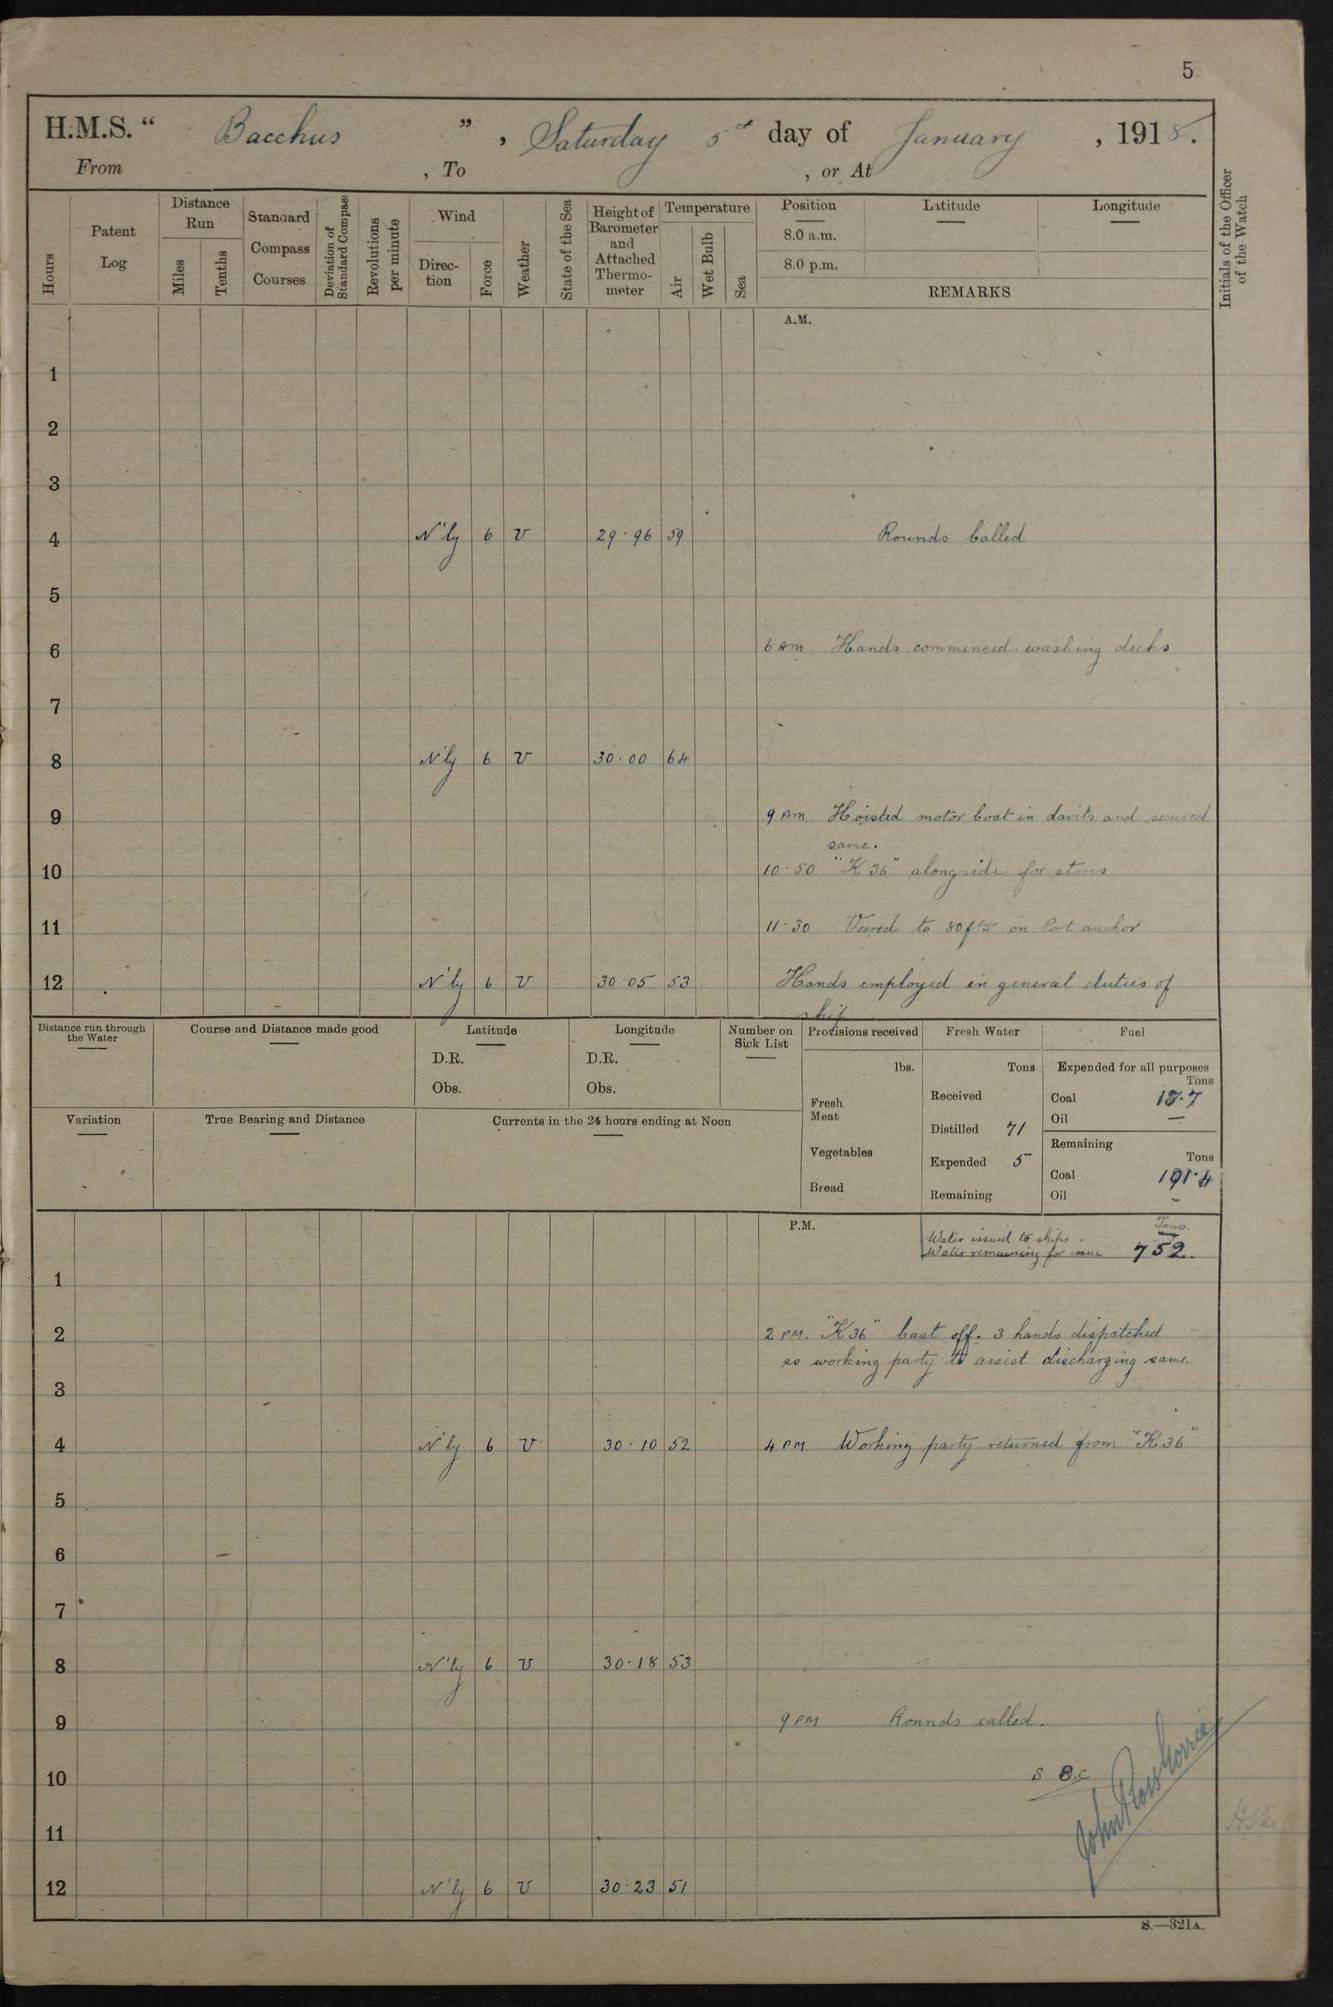 5
H.M.S. “ Bacchus ” , Saturday 5th day of January , 1918.
From , To , or At
Hours
Patent Log
Distance Run
Miles
Tenths
Standard Compass Courses
Deviation of Standard Compass
Revolutions per minute
Wind
Direc-tion
Force
Weather
State of the Sea
Height of Barometer and Attached Thermo-meter
Temperature
Air
Wet Bulb
Sea
Position
8.0 a.m.
8.0 p.m.
Latitude
Longitude
REMARKS
Initials of the Officer of the Watch
A.M.
1
2
3
4 N'ly 6 V 29·96 59 Rounds Called
5
6 6 AM Hands commenced washing decks
7
8 N'ly 6 V 30·00 64
9 9 AM Hoisted motor boat in davits and secured
same.
10 10-50 "K 36" alongside for stores
11 11·30 Veered to on Port anchor
12 N'ly 6 V 30·05 53 Hands employed in general duties of
ship
Distance run through the Water
Course and Distance made good
Latitude
D.R.
Obs.
Longitude
D.R.
Obs.
Number on Sick List
Provisions received
lbs.
Fresh Meat
Vegetables
Bread
Fresh Water
Tons
Received
Distilled 71
Expended 5
Remaining
Fuel
Expended for all purposes
Tons
Coal 17·7
Oil —
Remaining
Tons
Coal 191·4
Oil -
Variation
True Bearing and Distance
Currents in the 24 hours ending at Noon
P.M.
Water issued to ships - Tons.
Water remaining for issue 752.
1
2 2 PM. "K36" Cast off. 3 hands dispatched
as working party to assist discharging same.
3
4 N'ly 6 V 30·10 52 4 PM Working party returned from "K36"
5
6
7
8 N'ly 6 V 30·18 53
9 9 PM Rounds called.
10 S B.C
11
12 N'ly 6 V 30·23 51
S.—321A.